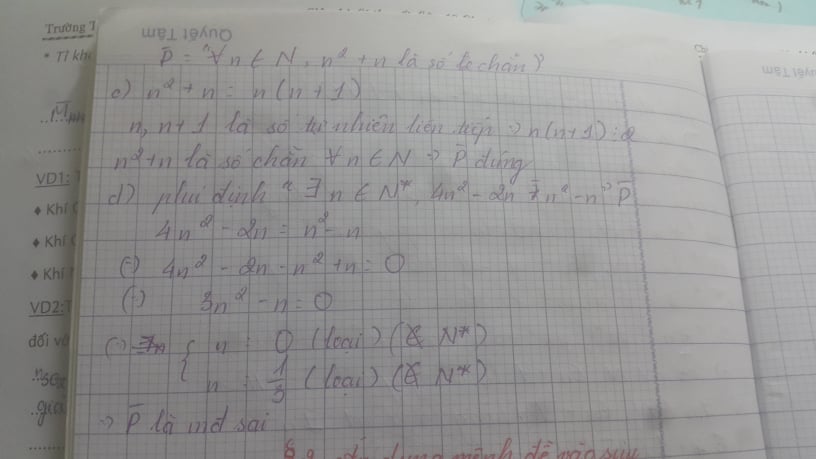 Quyết Tâm
Trường T
* Tỉ kh
VD1:
♦ Khí
♦ Khí
♦ Khí
VD2:
đối vớ
P̄ = "∀n ∈ N, n² + n là số chẵn"
c) n² + n = n(n+1)
n, n+1 là số tự nhiên liên tiếp => n(n+1) ⋮ 2
n²+n là số chẵn ∀n ∈ N => P̄ đúng
d) phủ định "∃n ∈ N*, 4n² - 2n ≠ n² - n" P̄
4n² - 2n = n² - n
(-) 4n² - 2n - n² + n = 0
(-) 3n² - n = 0
(-) { n = 0 (loại) (∉ N*)
n = 1/3 (loại) (∉ N*)
=> P̄ là mđ sai
mệnh đề vào suy